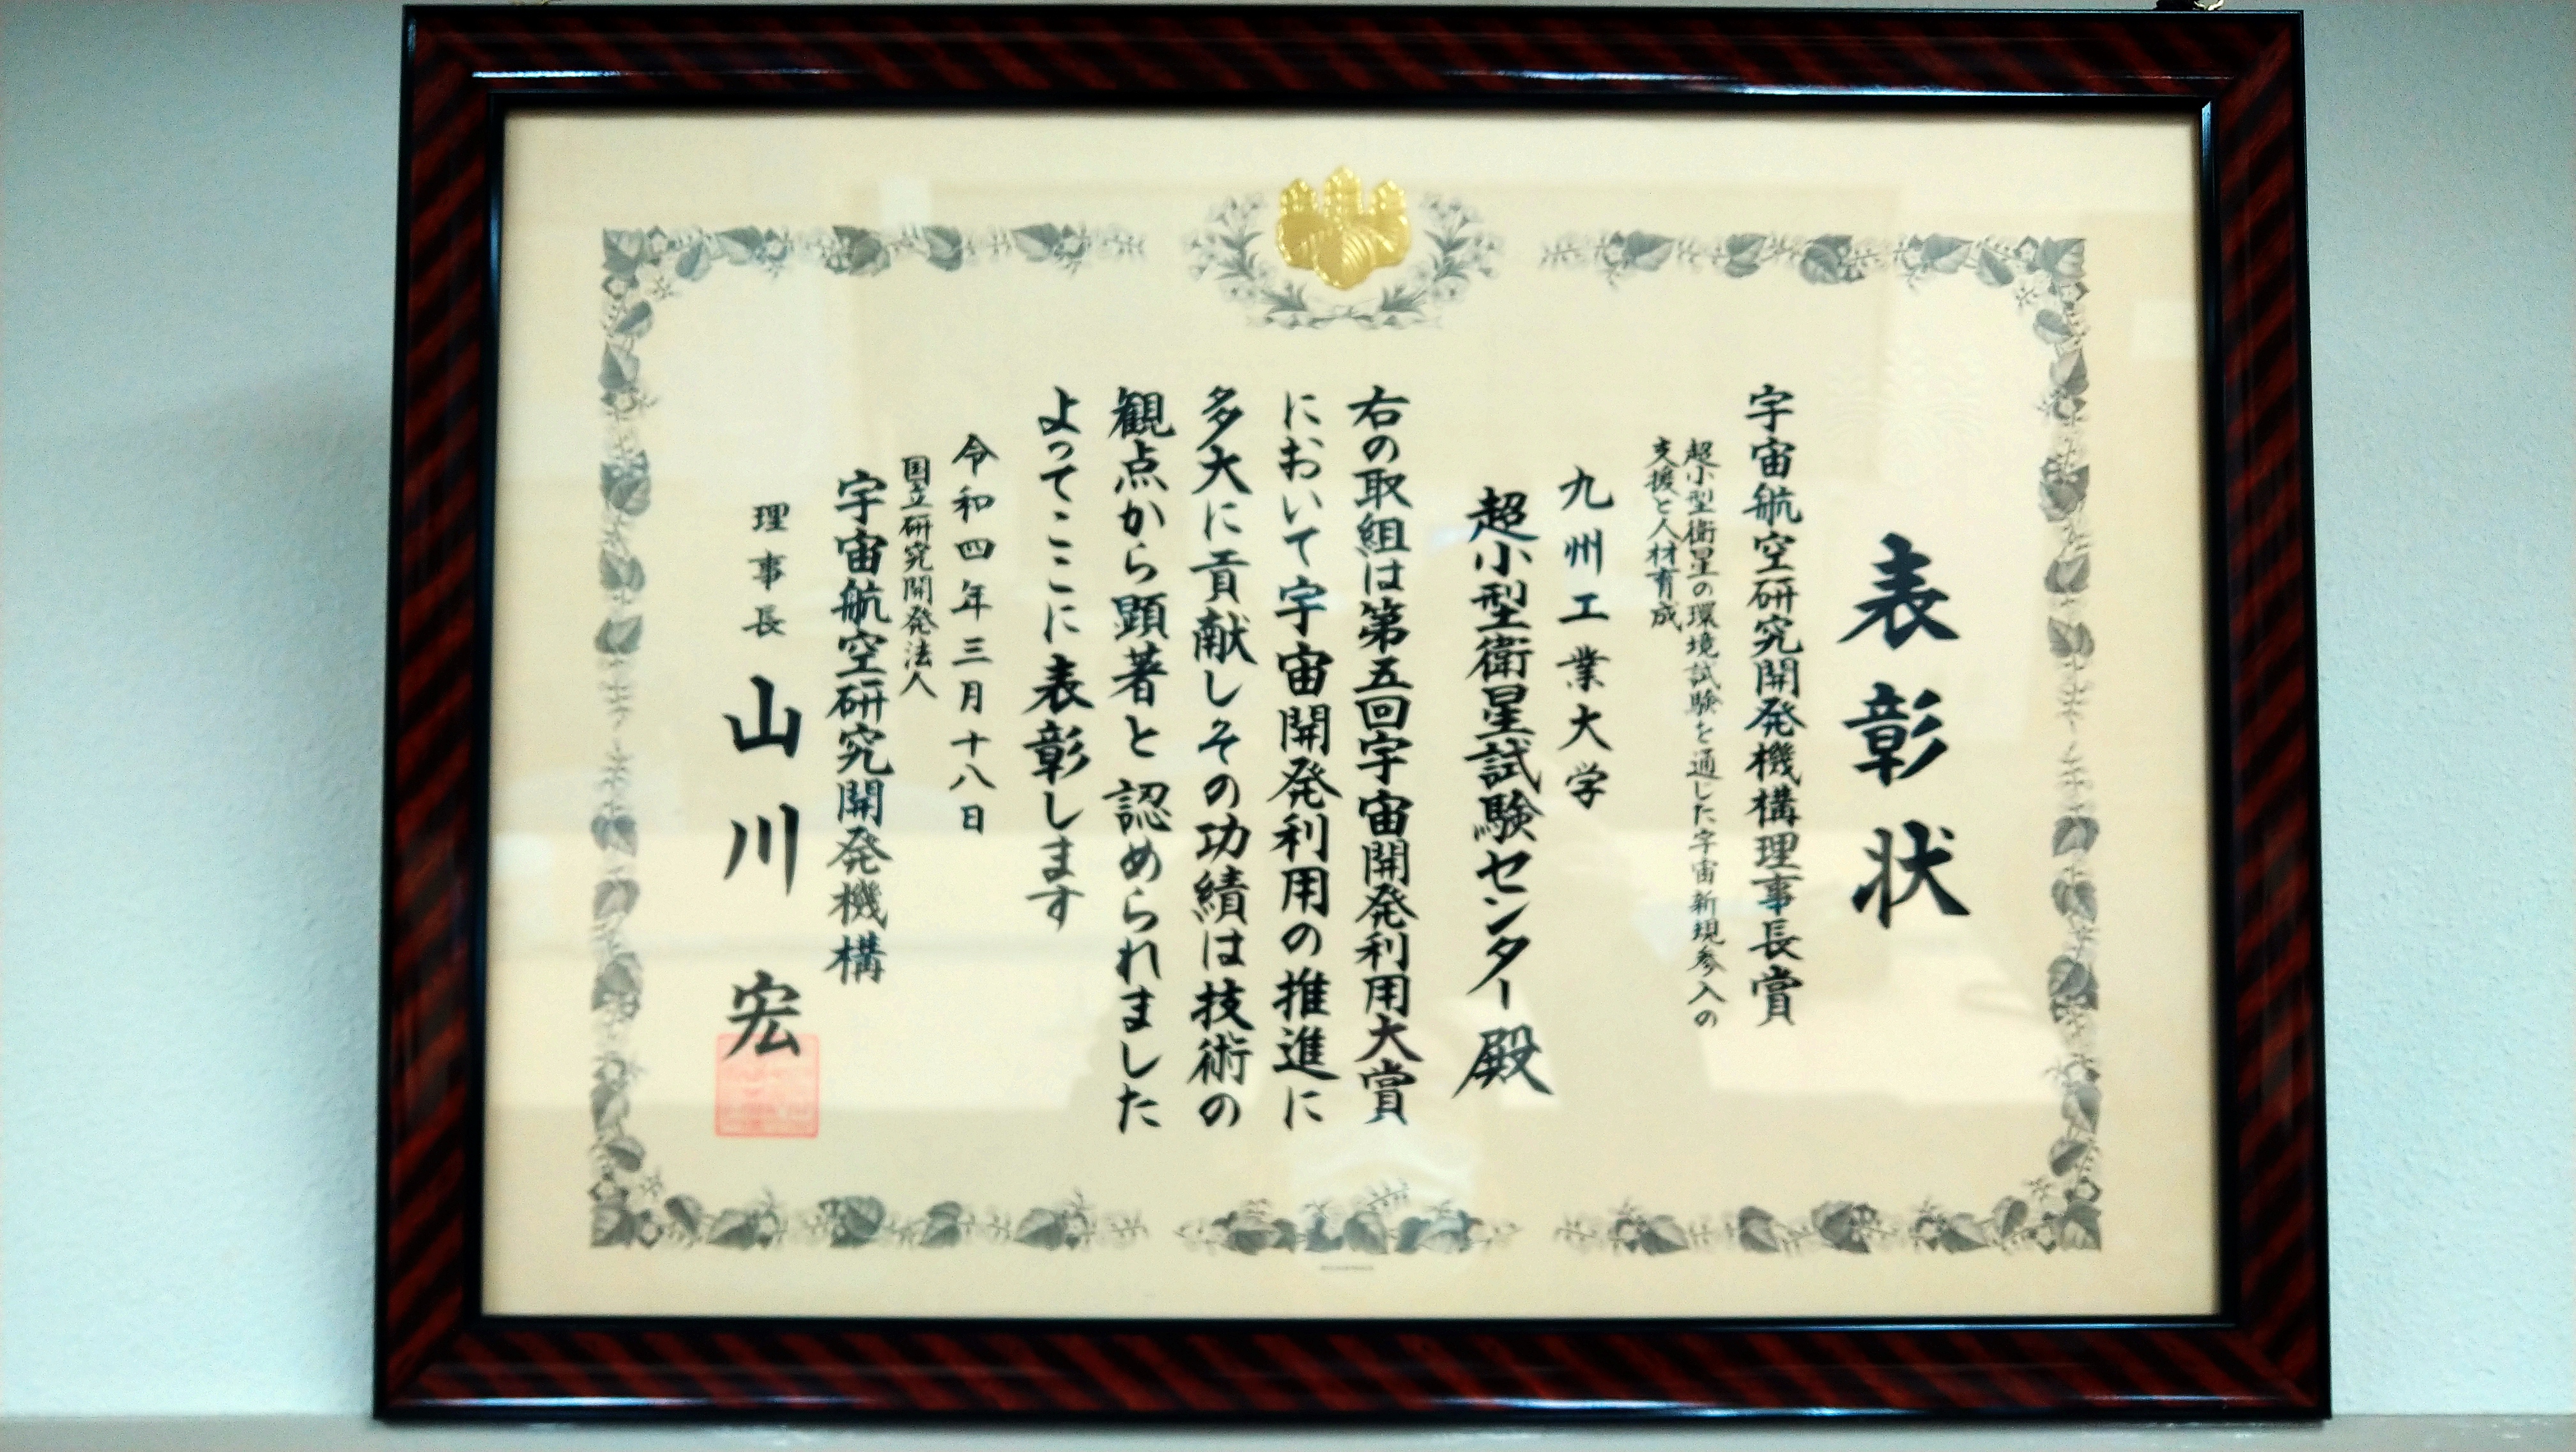 表彰状
宇宙航空研究開発機構理事長賞
超小型衛星の環境試験を通した宇宙新規参入の
支援と人材育成
九州工業大学
超小型衛星試験センター殿
右の取組は第五回宇宙開発利用大賞
において宇宙開発利用の推進に
多大に貢献しその功績は技術の
観点から顕著と認められました
よってここに表彰します
令和四年三月十八日
国立研究開発法人
宇宙航空研究開発機構
理事長 山川 宏